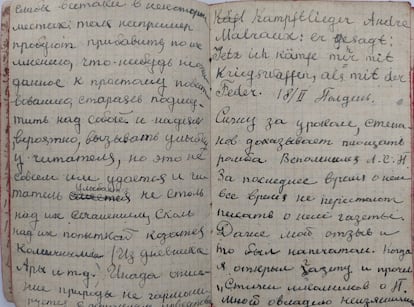 вставки в некоторых
местах; там например
пробуют прибавить по их
мнению, что-нибудь не
данное к простому повест
вованию, стараясь подшу-
тить над собой и надеясь
вероятно, вызвать улыбку
у читателя, но это не
совсем им удается и чи-
татель улыбается не столь
над их сочинением сколь
над их попыткой казаться
комичными. Из дневника
Ары и т.д. Иногда описа-
ние природы не гармони-
Kampflieger André
Malraux: er gesagt:
Jetz ich kämpfe mir mit
Kriegswaffen, als mit der
Feder. 18/II Полдень.
Сижу за уроком, степа
нов доказывает площадь
ромба. Вспомнился Л.С.Н
За последнее время о нем
все время не перестают
писать о нем газеты.
Даже мой отзыв и
то был напечатан. Когда
я открыл газету и проче
"Стихи школьников о П.
Мной овладело неизъяснимо